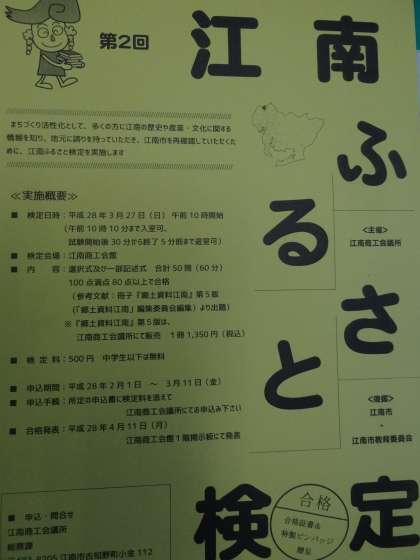 第2回
江南ふるさと検定
まちづくり活性化として、多くの方に江南の歴史や産業・文化に関する
情報を知り、地元に誇りを持っていただき、江南市を再確認していただくた
めに、江南ふるさと検定を実施します
≪実施概要≫
■ 検定日時：平成28年3月27日（日）午前10時開始
（午前10時10分まで入室可、
試験開始後30分から終了5分前まで退室可）
■ 検定会場：江南商工会館
■ 内 容：選択式及び一部記述式 合計50問（60分）
100点満点80点以上で合格
（参考文献：冊子『郷土資料江南』第5版
（『郷土資料江南』編集委員会編集）より出題）
※『郷土資料江南』第5版は、
江南商工会議所にて販売 1冊1,350円（税込）
■ 検 定 料：500円 中学生以下は無料
■ 申込期間：平成28年2月1日 ～ 3月11日（金）
■ 申込手続：所定の申込書に検定料を添えて
江南商工会議所にてお申込み下さい
■ 合格発表：平成28年4月11日（月）
江南商工会館1階掲示板にて発表
<主催>
江南商工会議所
<後援>
江南市
・
江南市教育委員会
合格
合格証書&
特製ピンバッジ
贈呈
■ 申込・問合せ
江南商工会議所
総務課
8205 江南市古知野町小金112